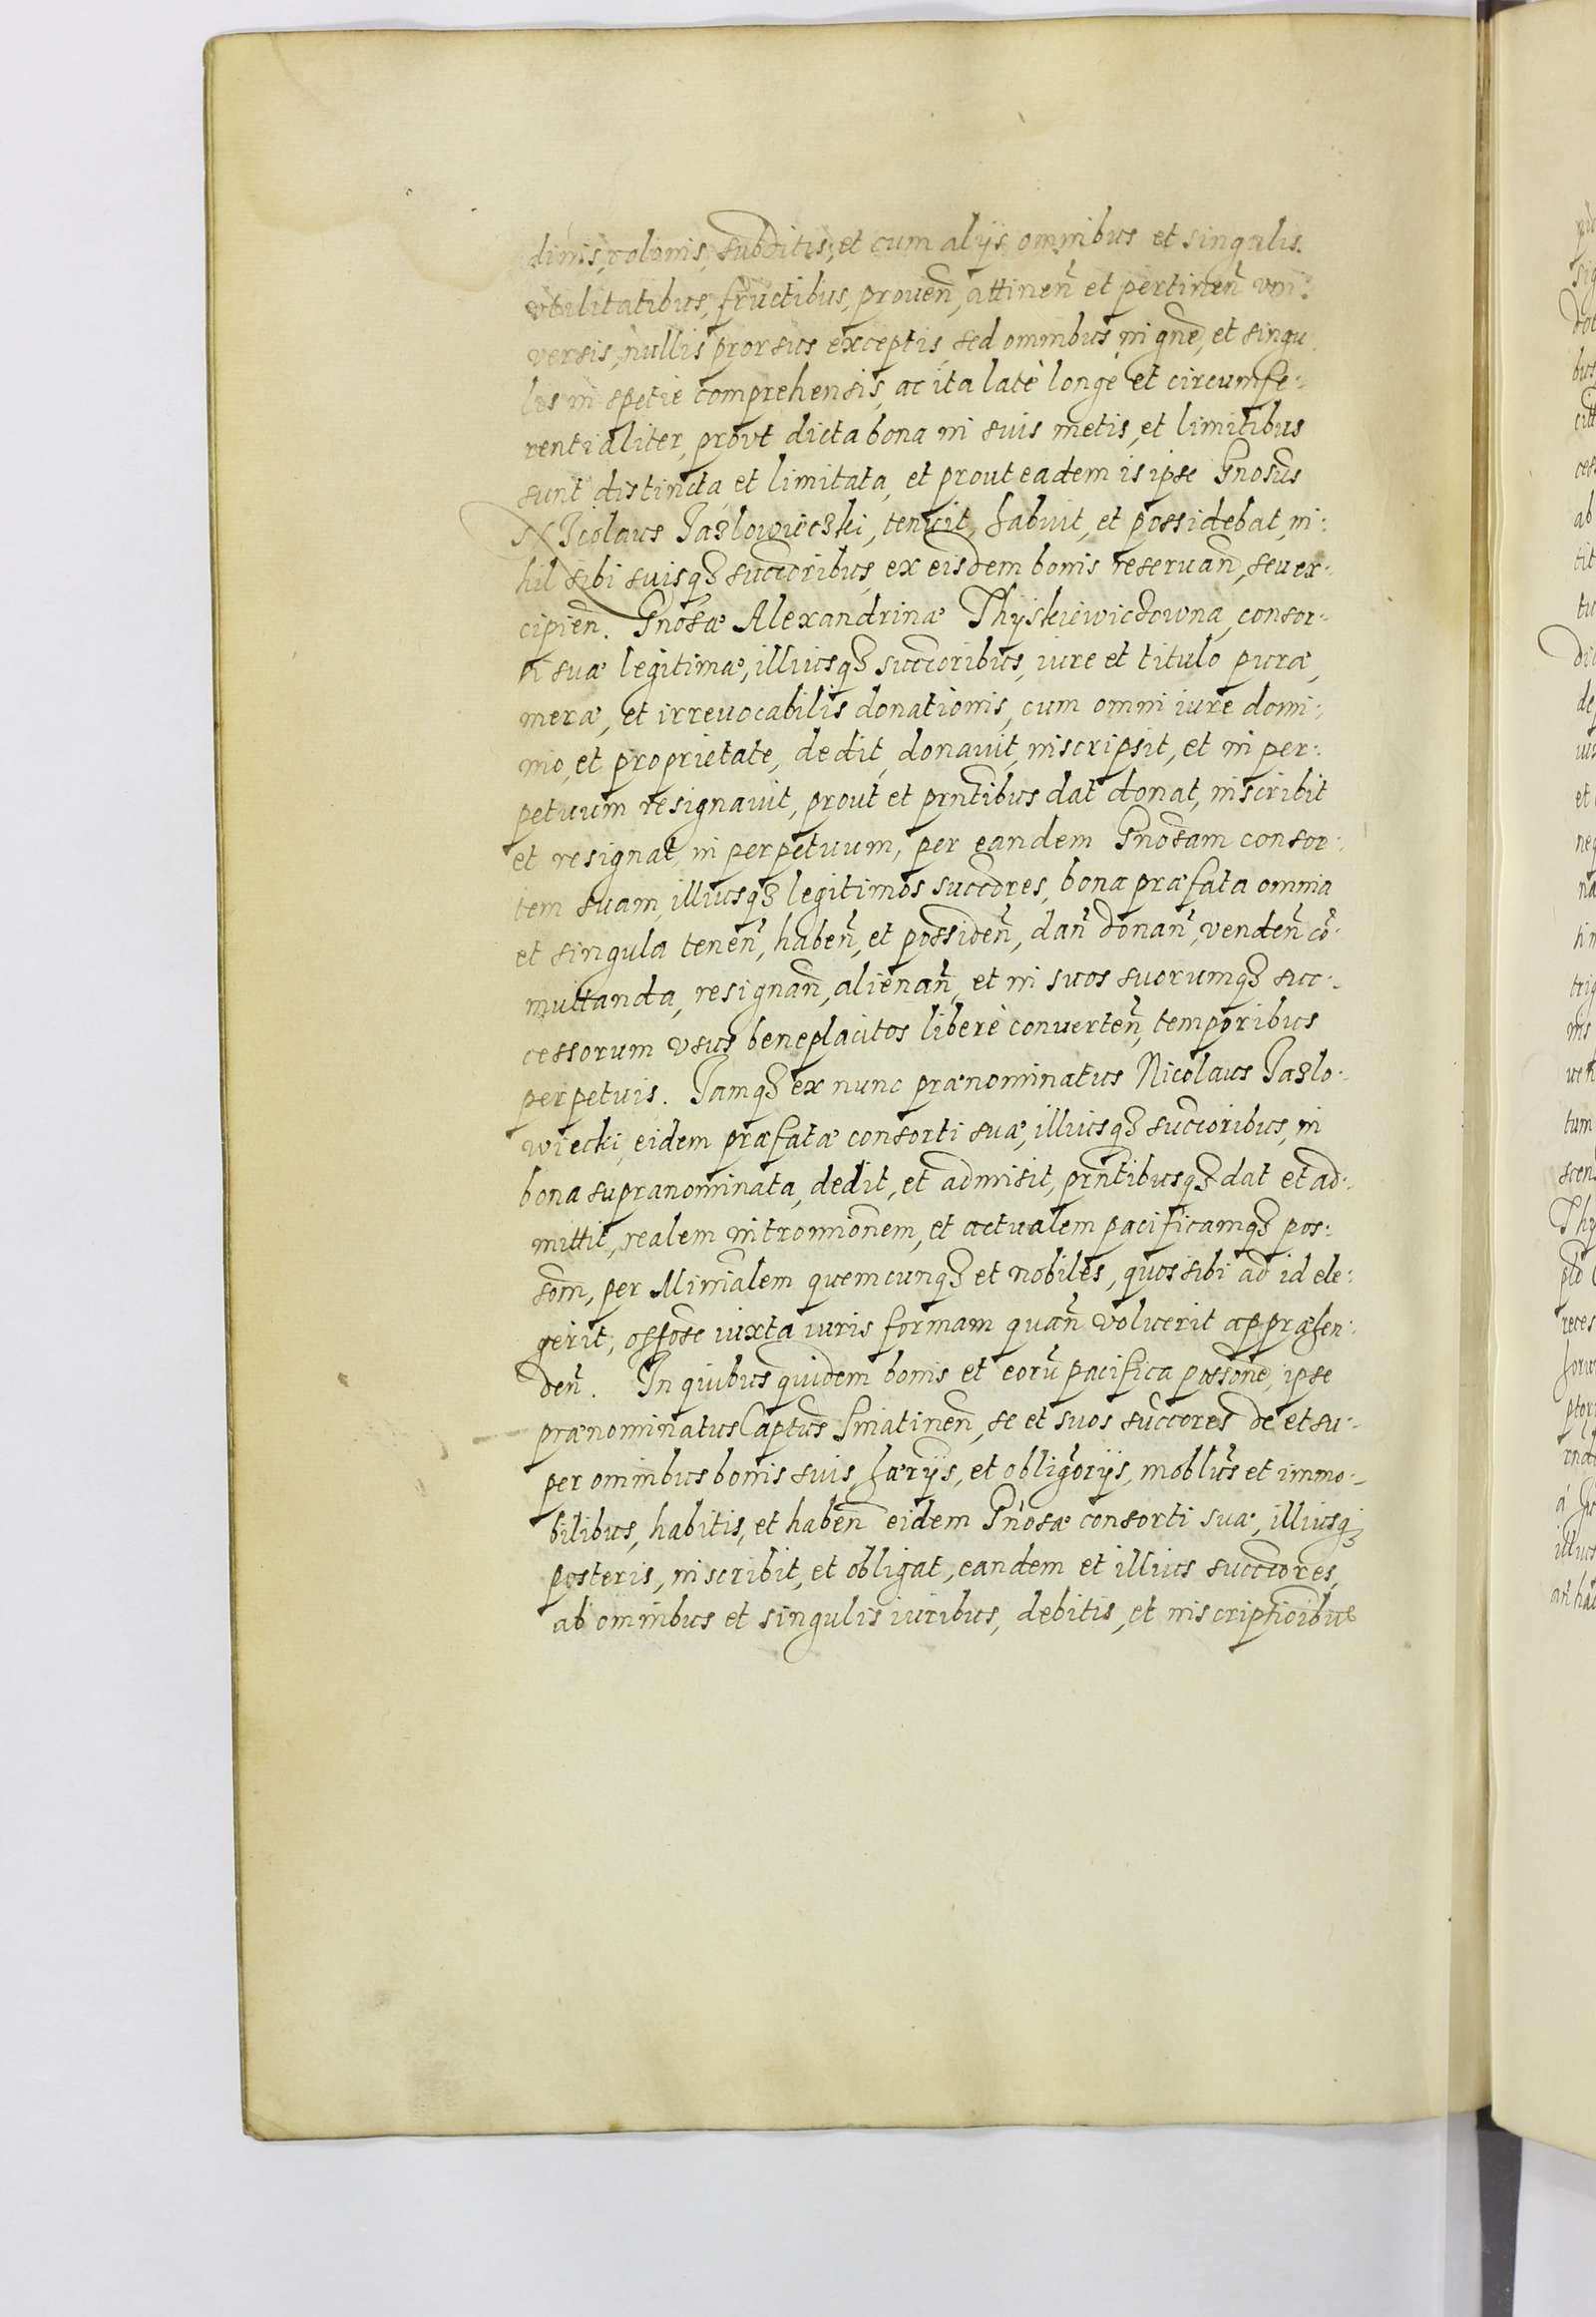 dinis, colonis, subditis, et cum alijs omnibus et singulis
vtilitatibus, fructibus, prouen̄, attinen̄ et pertinen̄ vni:
versis, nullis prorsus exceptis, sed omnibus in gn̄e, et singu
lis in spetie comprehensis, ac ita latè longè et circumfe:
rentialiter, provt dicta bona in suis metis, et limitibus
sunt distincta et limitata, et prout eadem is ipse Gn̄osus
Nicolaus Jazlowieczki, tenuit, habuit, et possidebat, ni:
hil sibi suisqȝ succ̄oribus, ex eisdem bonis reseruan̄, seu ex:
cipien̄. Gn̄osæ Alexandrinæ Thyskiewiczowna, consor:
ti suæ legitimæ, illiusqȝ succ̄oribus, iure et titulo puræ,
meræ, et irreuocabilis donationis, cum omni iure domi:
nio, et proprietate, dedit, donauit, inscripsit, et in per:
petuum resignauit, prout et prn̄tibus dat donat, inscribit
et resignat, in perpetuum, per eandem Gn̄osam consor:
tem suam, illiusqȝ legitimos succ̄ores, bona præfata omnia
et singula tenen̄, haben̄, et possiden̄, dan̄ donan̄, venden̄ cō:
muttanda, resignan̄, alienan̄, et in suos suorumqȝ suc:
cessorum vsus beneplacitos liberè conuerten̄, temporibus
perpetuis. Jamqȝ ex nunc prænominatus Nicolaus Jazlo:
wiecki, eidem præfatæ consorti suæ, illiusqȝ succ̄oribus, in
bona supranominata, dedit, et admisit, prn̄tibusqȝ dat et ad:
mittit, realem intromion̄em, et actualem pacificamqȝ pos:
som̄, per Minialem quemcunqȝ et nobiles, quos sibi ad id ele:
gerit, off̄ose iuxta iuris formam quan̄ voluerit appræhen:
den̄. In quibus quidem bonis et eorū pacifica posson̄e, ipse
prænominatus Captūs Sniatinen̄, se et suos succ̄ores de et su:
per omnibus bonis suis, hærijs, et obligorijs, moblūs et immo:
bilibus, habitis, et haben̄ eidem Gn̄osæ consorti suæ, illiusqȝ
posteris, inscribit, et obligat, eandem et illius succ̄ores,
ab omnibus et singulis iuribus, debitis, et inscriptioībus